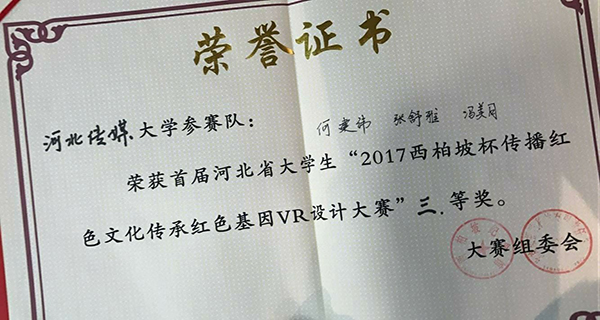 荣誉证书
河北传媒大学参赛队： 何建伟 张舒雅 冯美月
荣获首届河北省大学生“2017西柏坡杯传播红
色文化传承红色基因VR设计大赛”三.等奖。
大赛组委会